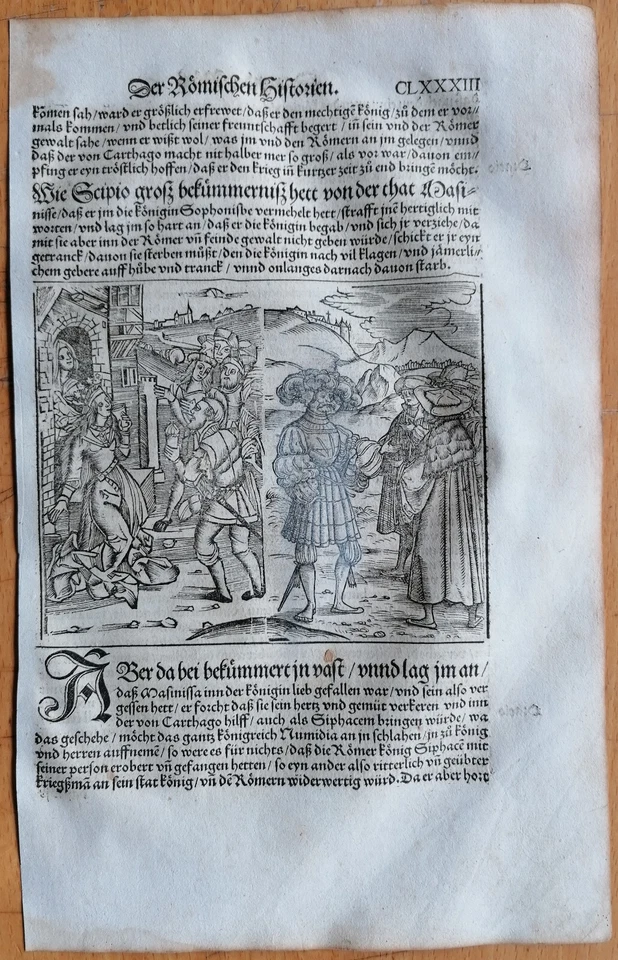 Der Römischen Historien. CLXXXIII
kōmen sah/ward er größlich erfrewet/daß er den mechtigē könig/zů dem er vor/
mals kommen/vnd betlich seiner freuntschafft begert/iñ sein vnd der Römer
gewalt sahe/wenn er wißt wol/was jm vnd den Römern an jm gelegen/vnnd
daß der von Carthago macht nit halber mer so groß/als vor war/dauon em/
pfing er eyn tröstlich hoffen/daß er den krieg iñ kurtzer zeit zů end bringē möcht.
Wie Scipio grosz bekümmernisz hett von der that Masi-
nisse/daß er jm die königin Sophonisbe vermehelt hett/strafft jnē hertiglich mit
worten/vnd lag jm so hart an/daß er die königin begab/vnd sich jr verziehe/da
mit sie aber inn der Römer vñ feinde gewalt nicht geben würde/schickt er jr eyn
getranck/dauon sie sterben můßt/den die königin nach vil klagen/vnd jämerli/
chem gebere auff hůbe vnd tranck/vnnd onlanges darnach dauon starb.
ABer da bei bekümmert jn vast/vnnd lag jm an/
daß Masinissa inn der königin lieb gefallen war/vnd sein also ver
gessen hett/er forcht daß sie sein hertz vnd gemüt verkeren vnd inn
der von Carthago hilff/auch als Siphacem bringen würde/wa
das geschehe/möcht das gantz königreich Numidia an jn schlahen/jn zů könig
vnd herren auffnemē/so were es für nichts/daß die Römer könig Siphacē mit
seiner person erobert vñ gefangen hetten/so eyn ander also ritterlich vñ geübter
kriegßmā an sein stat könig/vñ dē Römern widerwertig würd. Da er aber hort